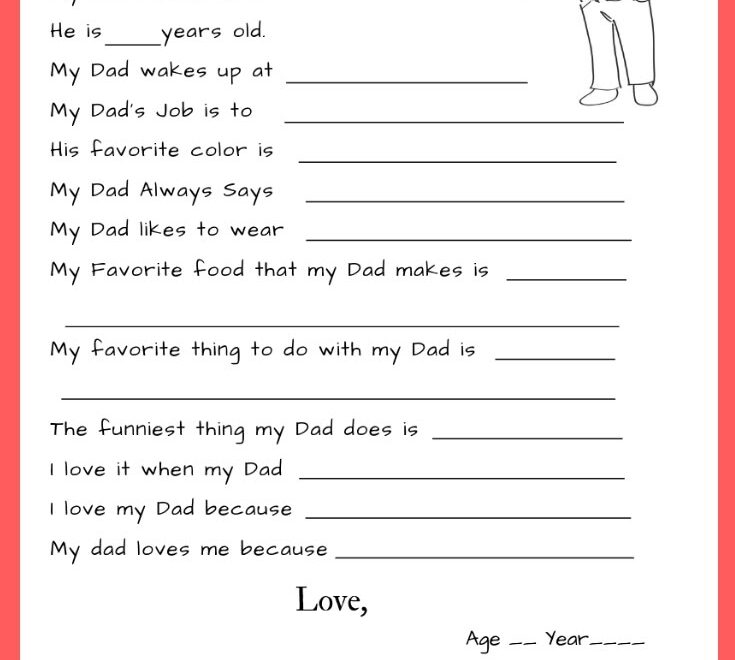 He is_____years old.
My Dad wakes up at ____________________
My Dad's Job is to ____________________
His favorite color is ____________________
My Dad Always Says ____________________
My Dad likes to wear ____________________
My Favorite food that my Dad makes is __________
____________________
My favorite thing to do with my Dad is __________
____________________
The funniest thing my Dad does is ____________________
I love it when my Dad ____________________
I love my Dad because ____________________
My dad loves me because ____________________
Love,
Age __ Year____